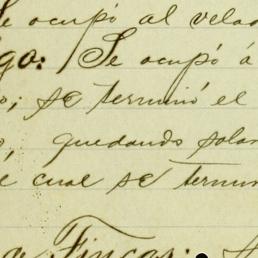 se ocupó al velad
go: Se ocupó á
o; se terminó el
quedando solam
e cual se termin
Fincas: